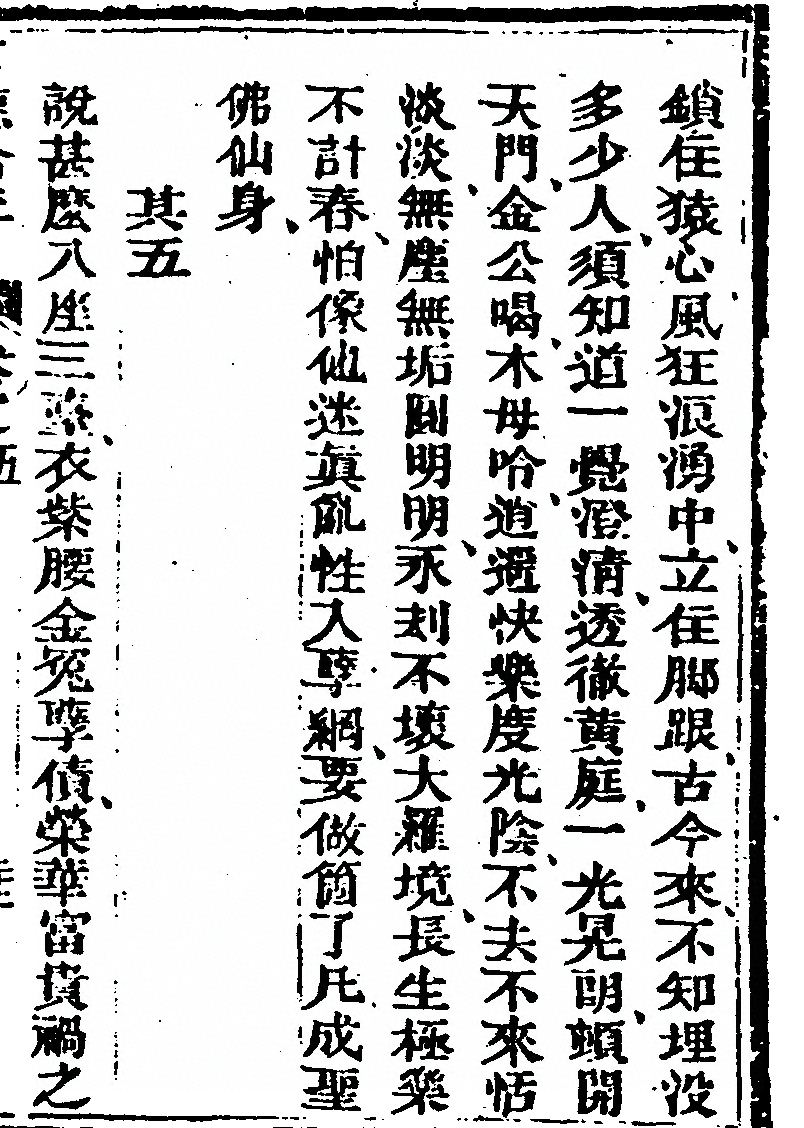 鎖住猿心、風狂浪湧中、立住脚跟、古今來、不知埋没
多少人、須知道一覺澄清、透徹黃庭、一光晃朗、頓開
天門、金公喝、木母吟、逍遥快樂度光陰、不去不來恬
淡淡、無塵無垢圓明明、永刦不壞大羅境、長生極樂
不計春、怕傢仙迷眞亂性入孽網、要做箇了凡成聖
佛仙身、
其五
說甚麽八座三臺、衣紫腰金冤孽債、榮華富貴禍之